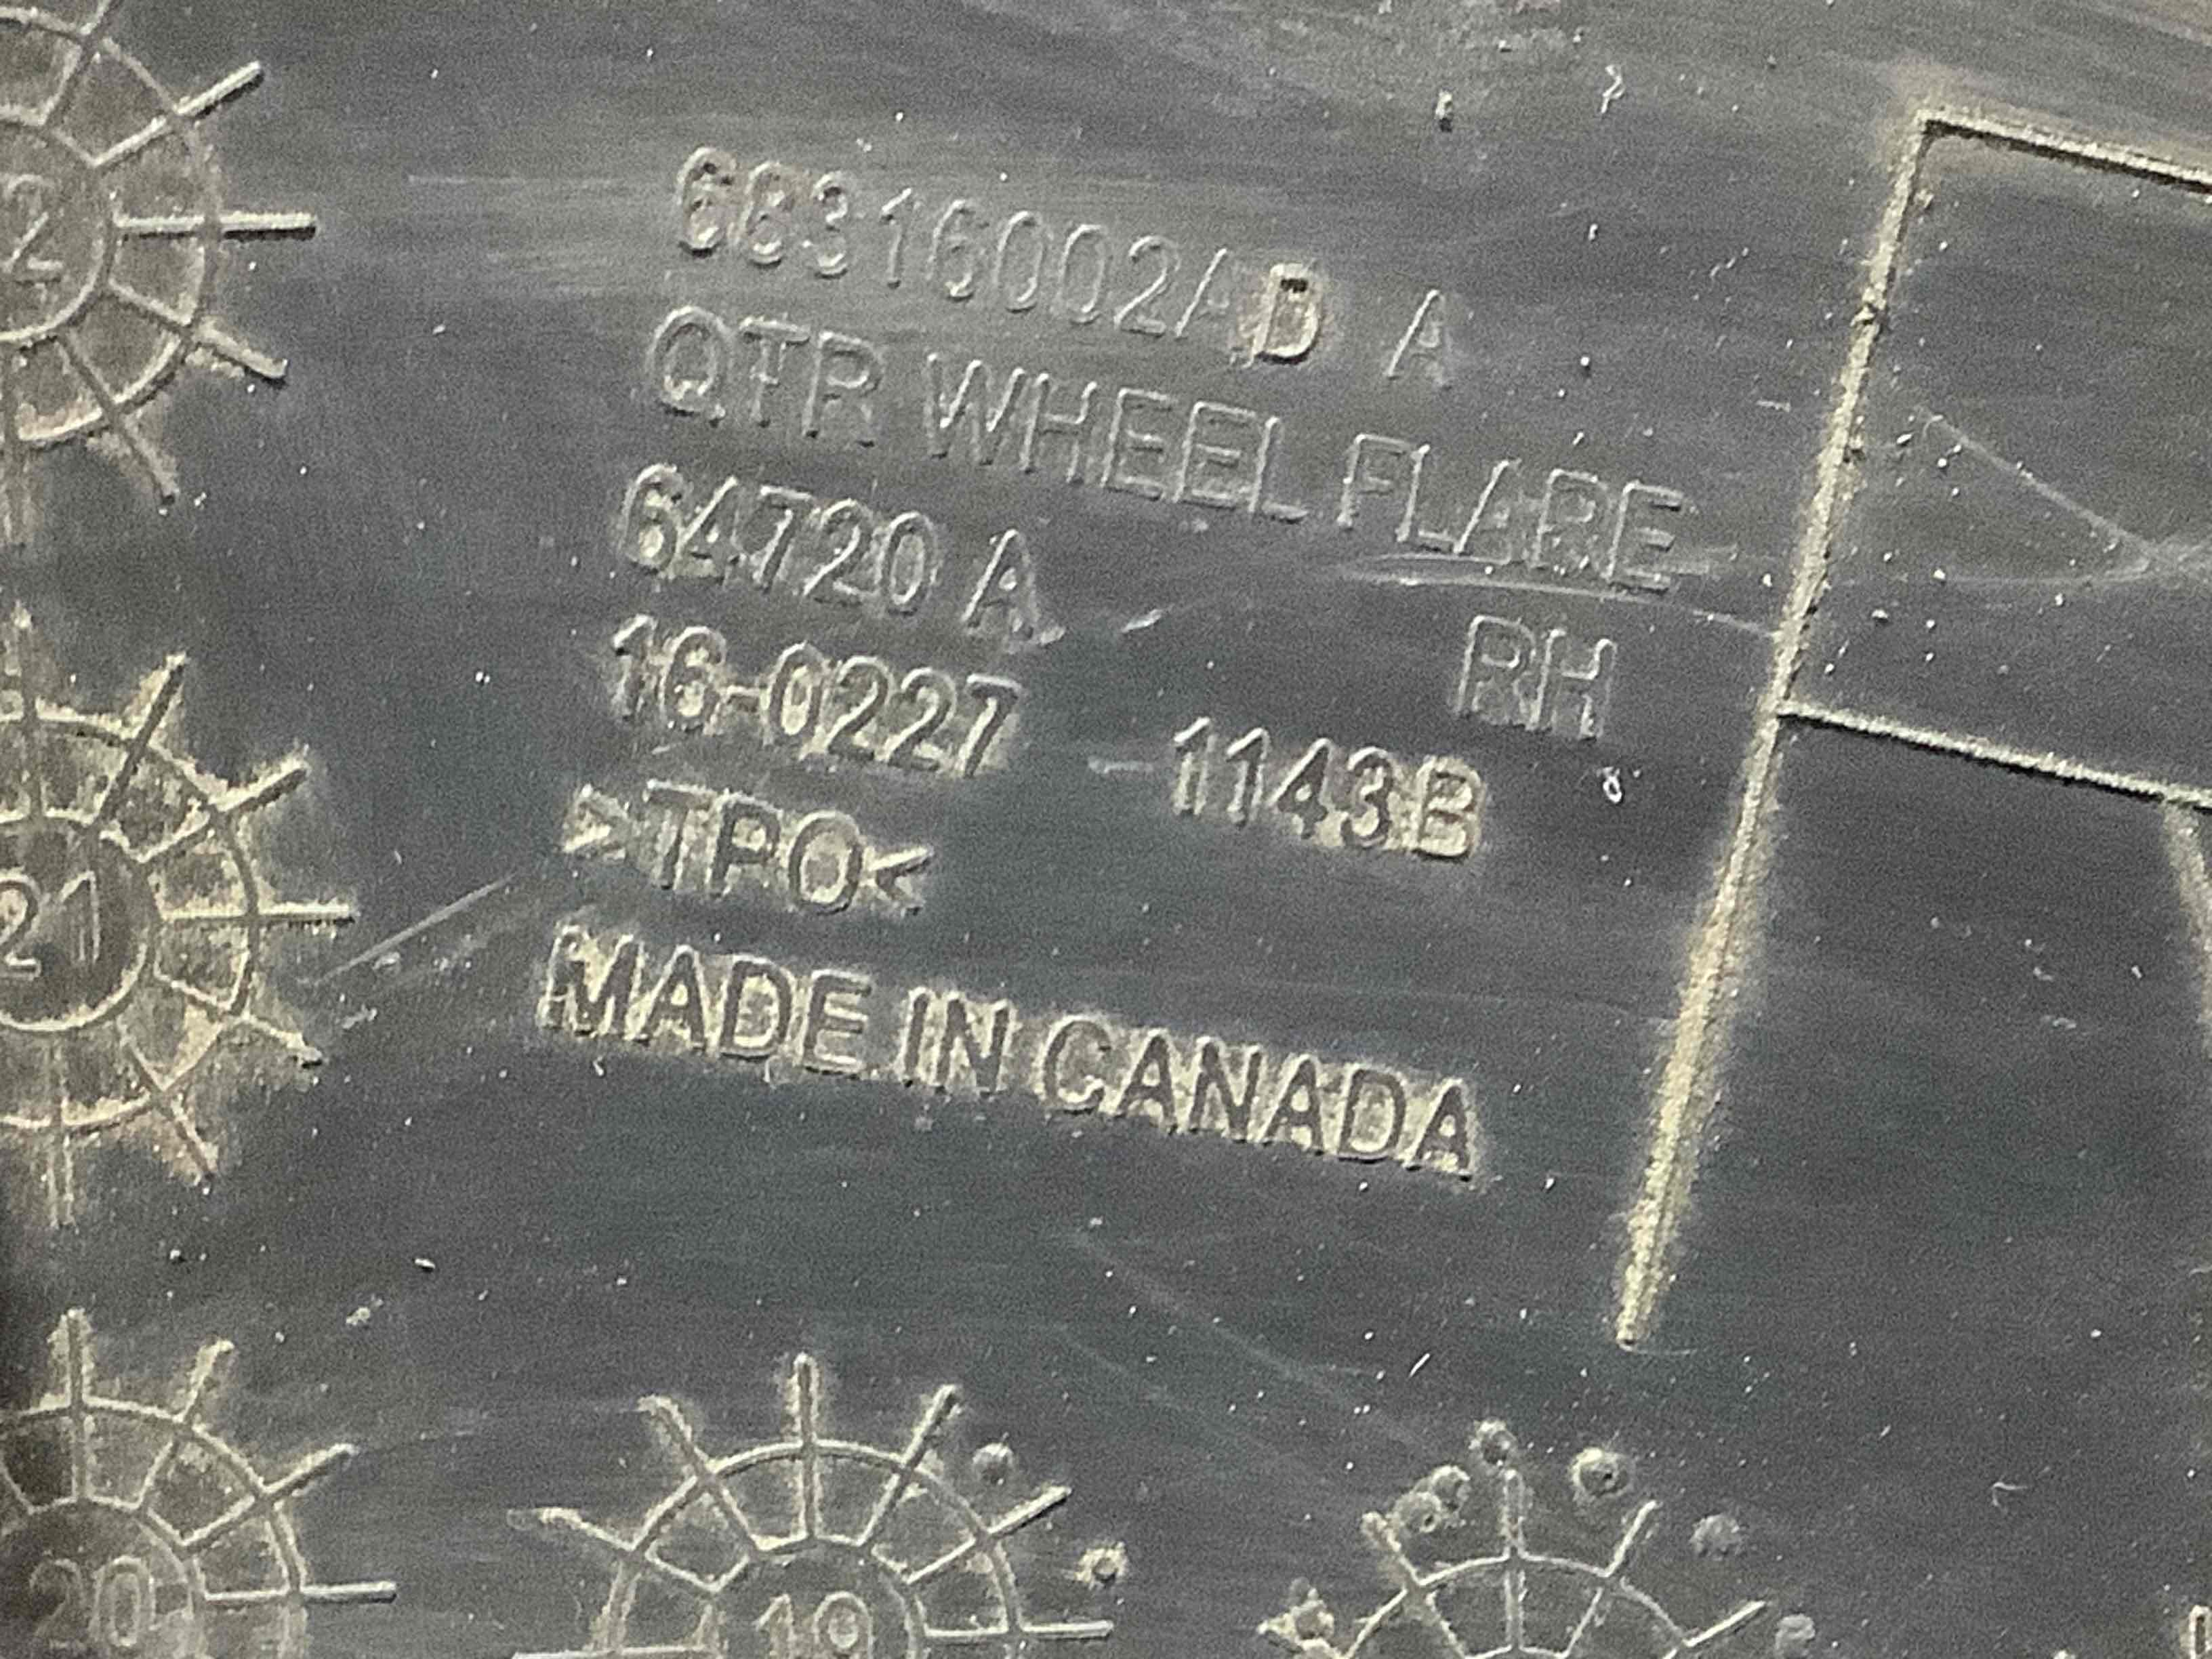 68316002AD A
QTR WHEEL FLARE
64720 A
RH
16-0227 -1143B
>TPO<
MADE IN CANADA
2
21
20
19